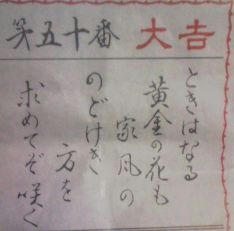 第五十番 大吉
ときはなる
黄金の花も
家風の
のどけき
方を
求めてぞ咲く